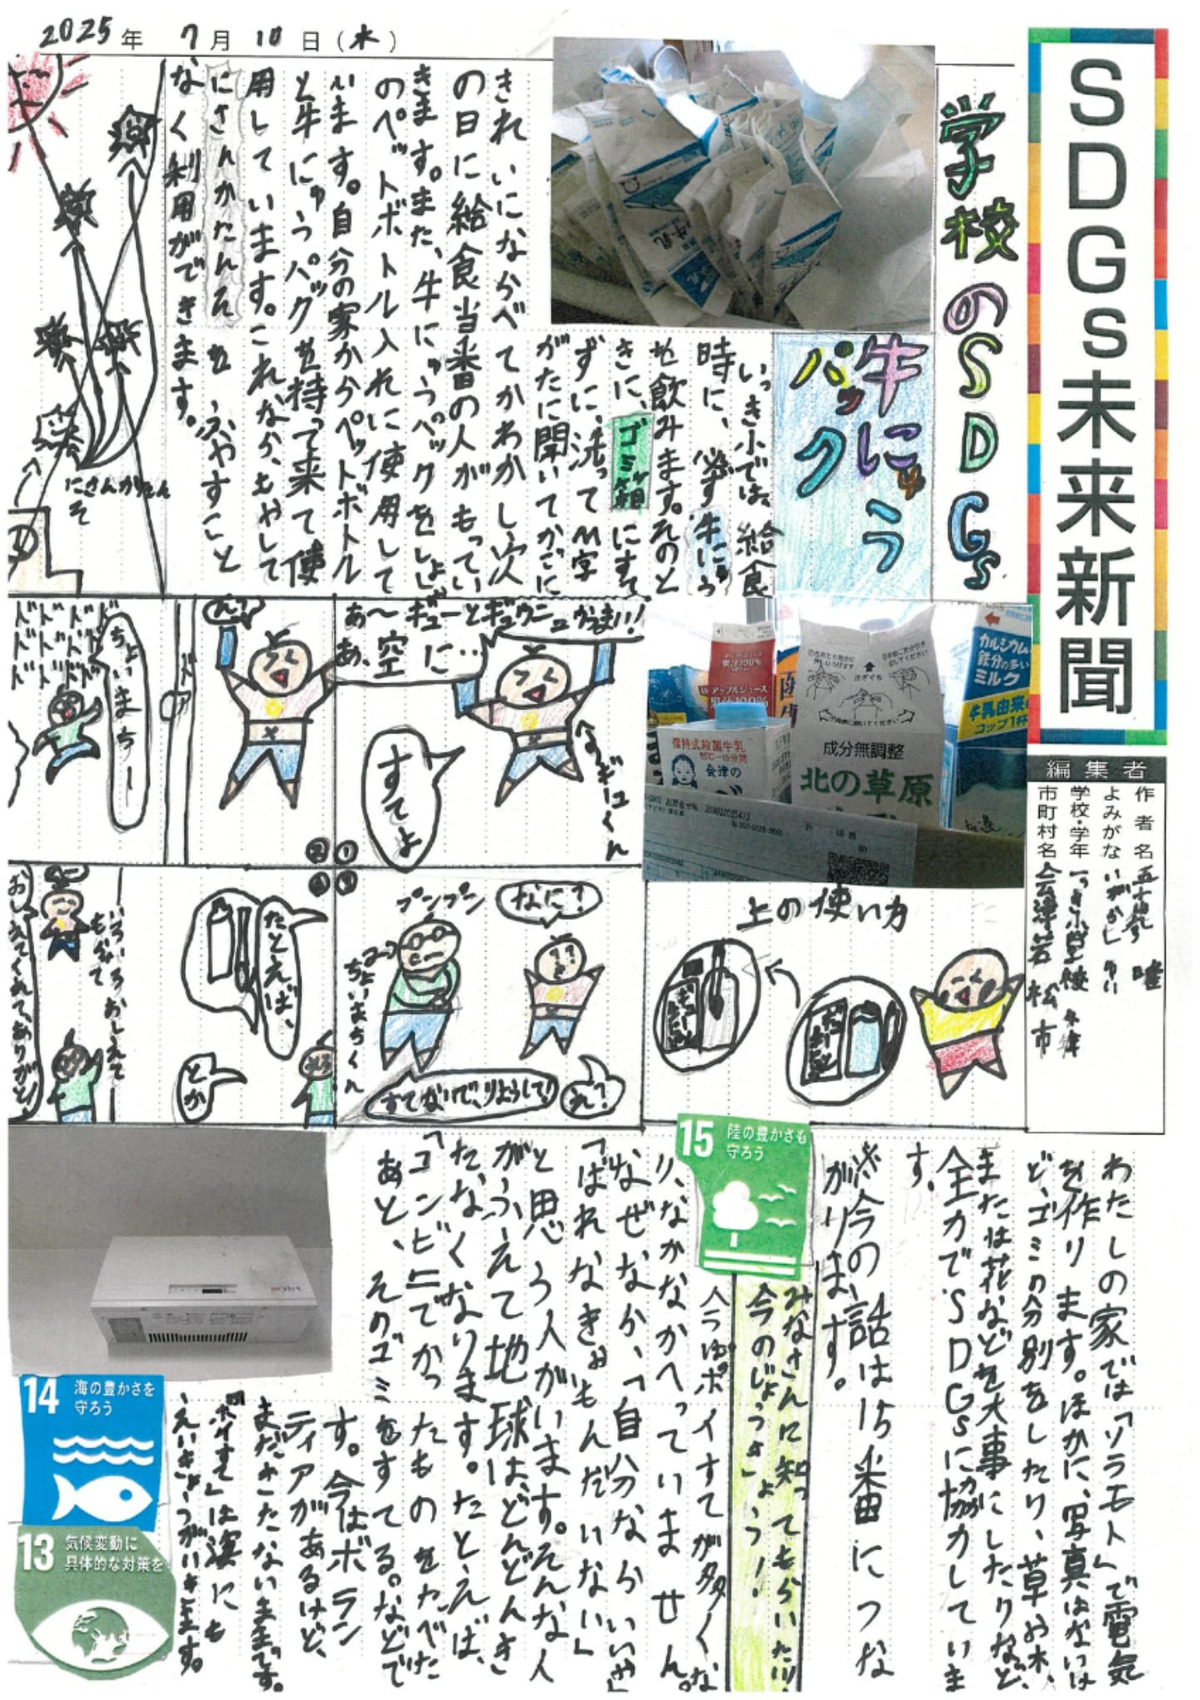 2025年 7月10日(水)
SDGs未来新聞
編集者
作者名
よみがな いがらし ゆい
学校・学年 一き小学校 4年
市町村名 会津若松市
学校のSDGs
牛にゅう
パック
いっき小では、給食
時に、必ず牛にゅう
を飲みます。そのと
きに、ゴミ箱にすて
ずに、洗ってM字
がたに開いてかごに
きれいにならべてかわかし、次
の日に給食当番の人がもってい
きます。また、牛にゅうパックをしょ
のペットボトル入れに使用して
います。自分の家からペットボトル
と牛にゅうパックを持って来て使
用しています。これなら、もやして
にさんかたんそを ふやすこと
なく利用ができます。
にさんかたん
そ
カルシウム
鉄分の多い
ミルク
牛乳由来の
コップ1杯
成分無調整
北の草原
保持式殺菌牛乳
会津の
上の使い方
ギューとギュウニュウうまい!!
あ~空に…
あ、
すてよ
へぎぎゅーくん
①
②
ん?
ドア
ちょいまちー
ドドドドド
なに?
プンプン
ちょいまちくん
すてないで、りようして!
え?
たとえば、
とか
いろいろおしえて
もらって
おしえてくれてありがとう
わたしの家では「ソラモト」で電気
を作ります。ほかに、写真はないけ
ど、ゴミの分別をしたり、草や木、
または花などを大事にしたりなど、
全力でSDGsに協力していま
す。
※今の話は15番につな
がります。
15 陸の豊かさも
守ろう
みなさんに知ってもらいたい!
今のじょうきょう!
今はポイすてが多くな
り、なかなかへっていません。
なぜなら、「自分ならいいや」
「ばれなきゃもんだいない」
と思う人がいます。そんな人
がふえて地球は、どんどんき
たなくなります。たとえば、
「コンビニでかったものをたべた
あと、そのゴミをすてる。などで
す。今はボラン
ティアがあるけど、
まだきたないままです。
「ポイすて」は海にも
えいきょうがいきます。
14 海の豊かさを
守ろう
13 気候変動に
具体的な対策を